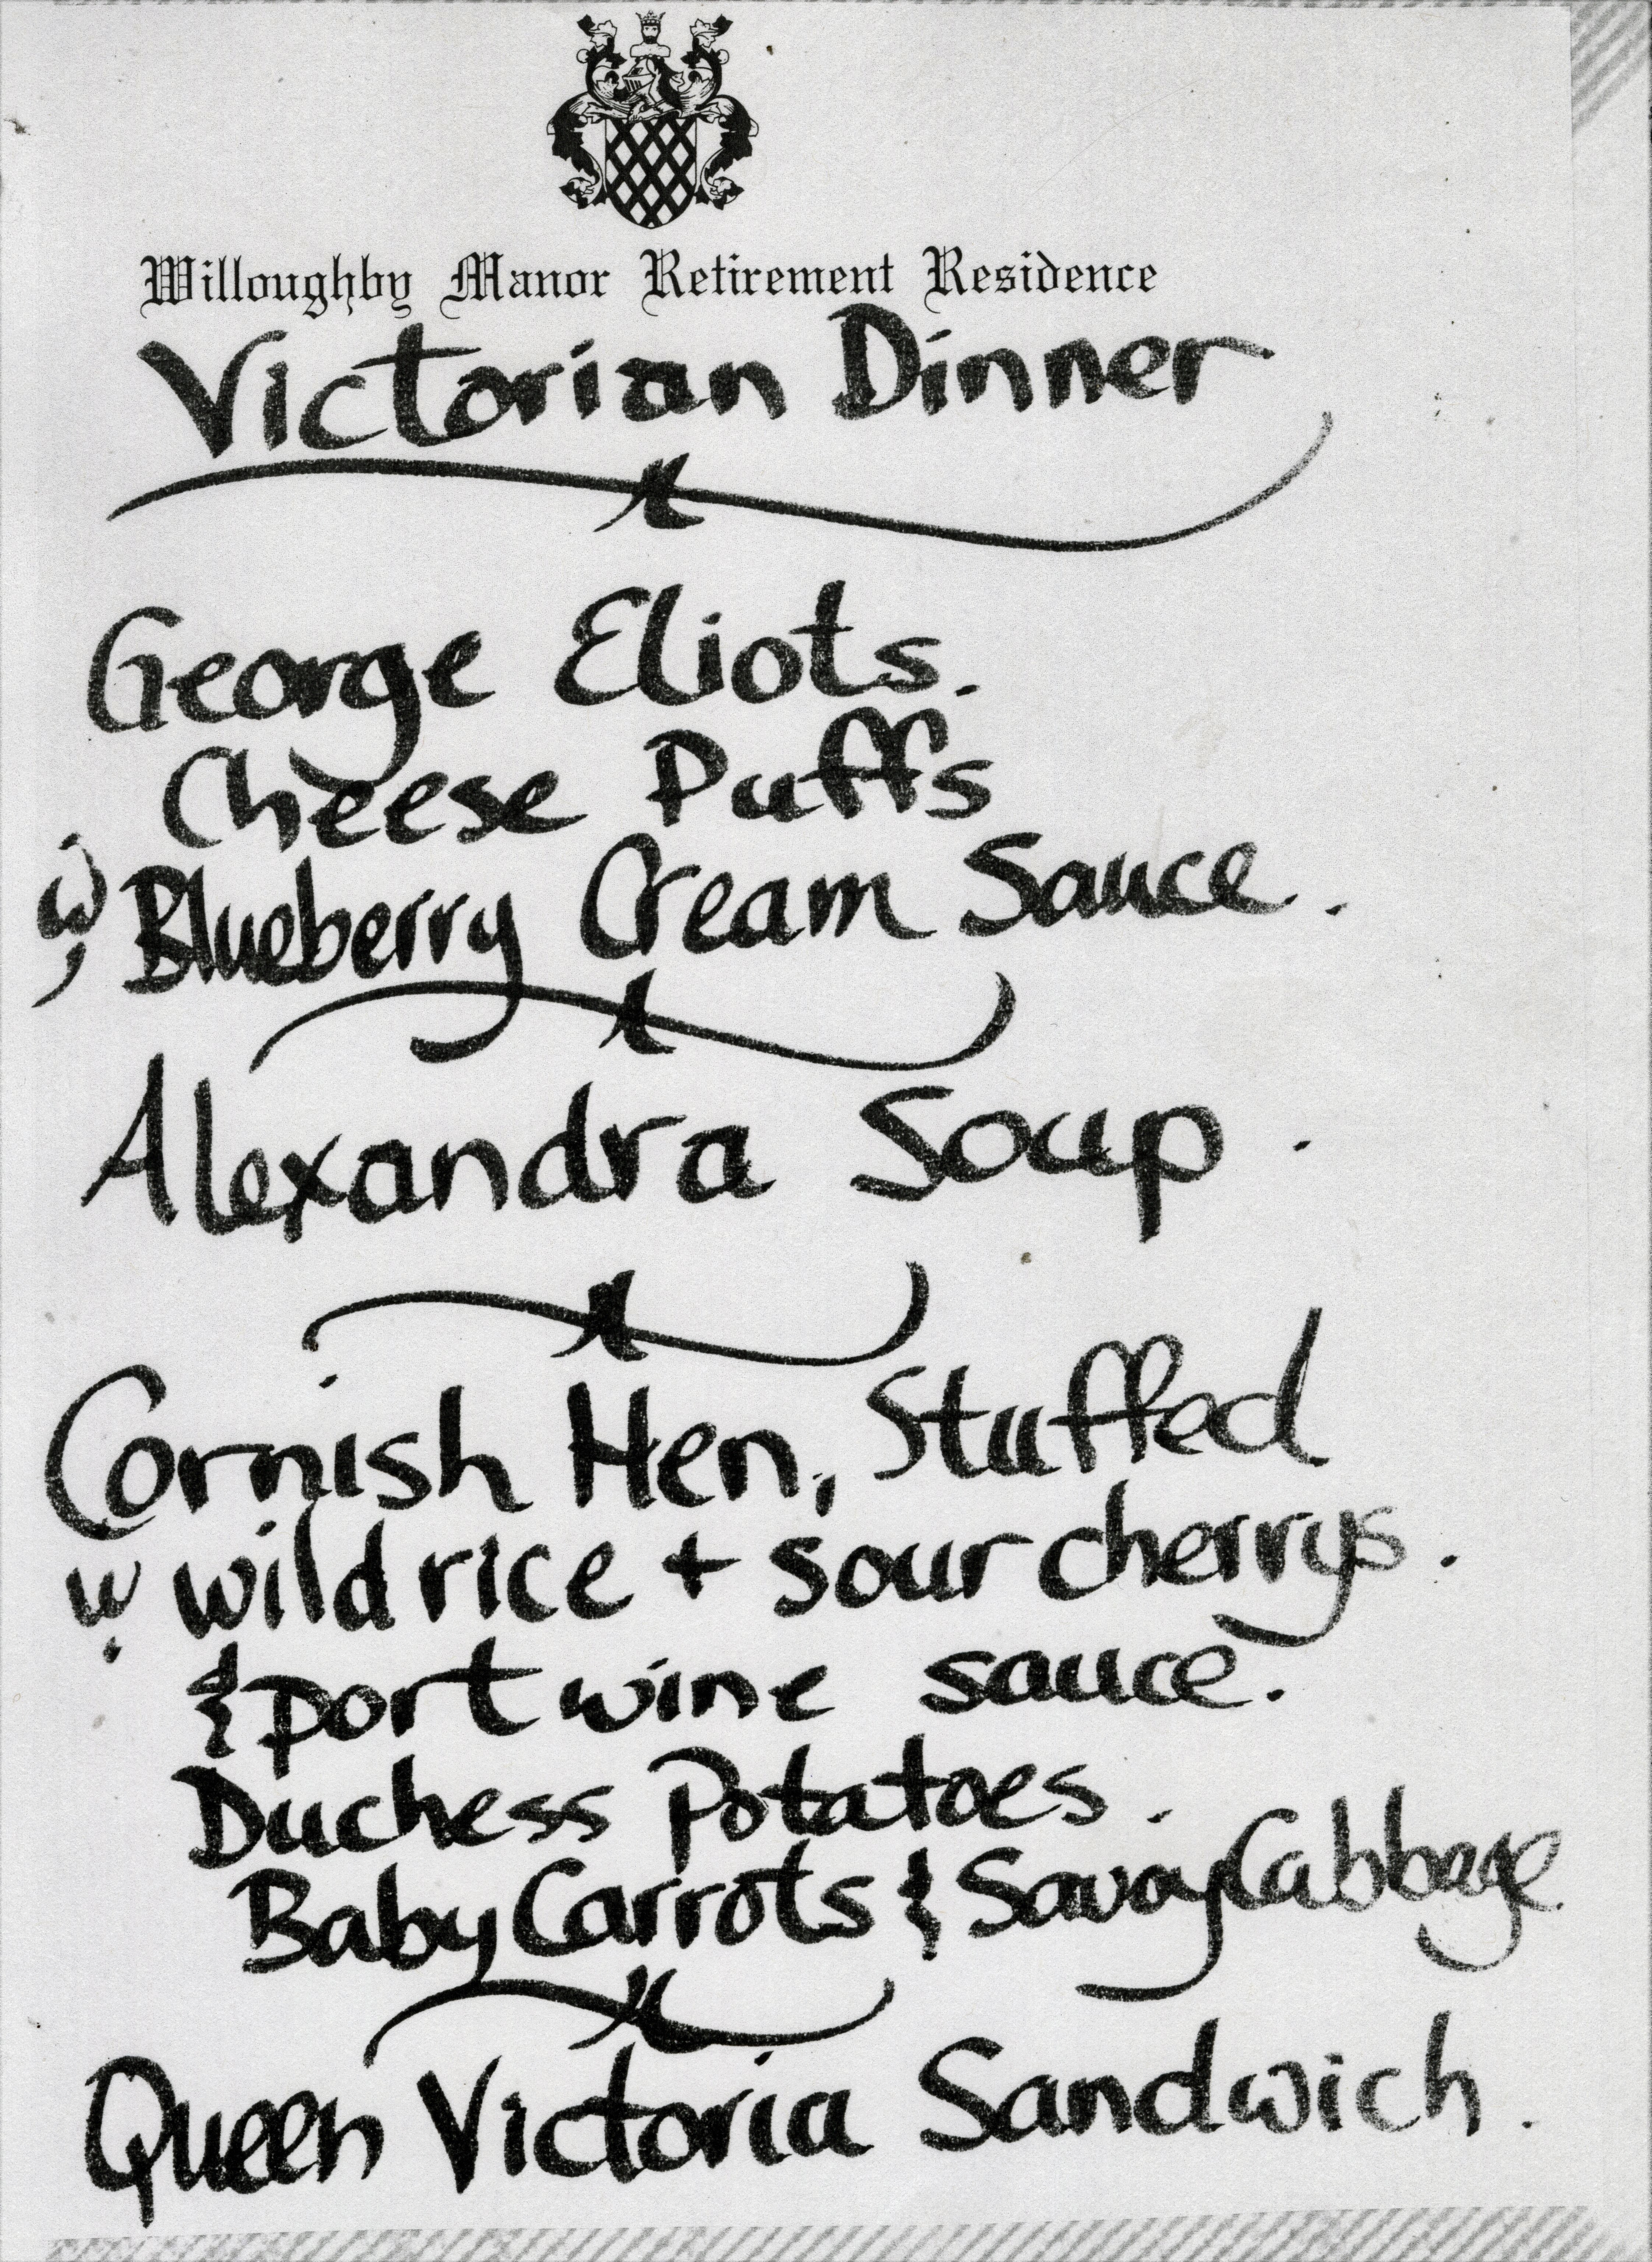 Willoughby Manor Retirement Residence
Victorian Dinner
George Eliots.
Cheese Puffs
w/ Blueberry Cream Sauce.
Alexandra Soup.
Cornish Hen, Stuffed
w wild rice + sour cherrys.
& port wine sauce.
Duchess Potatoes.
Baby Carrots & Savoy Cabbage.
Queen Victoria Sandwich.